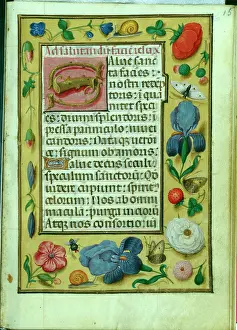 Ad salutandū faciē ihū x
Salue sanc
ta facies :
nostri redep
toris : ī qua
nitet speci
es : diuini splendoris : ī
pressa panniculo : niuei
candoris : Dataq; uero
ce : signum ob amoris :
Salue decus seculi
speculum sanctorū : Qō
uidere cupiunt : spirit⁹
celorum : Nos ab omni
macula : purga uitiorū
Atq; nos consortio : iū